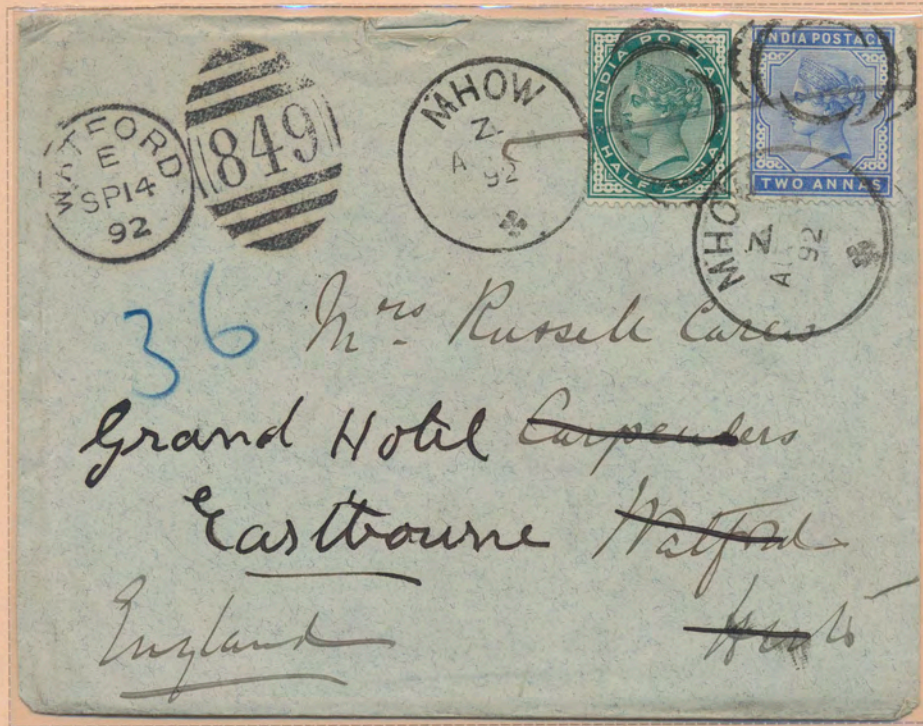 WATFORD
E
SP14
92
849
MHOW
Z.
A
92
INDIA POSTAGE
HALF ANNA
INDIA POSTAGE
TWO ANNAS
MHOW
Z.
AU
92
36
Mrs. Russell Carew
Grand Hotel Carpenders
Eastbourne Watford
England Herts